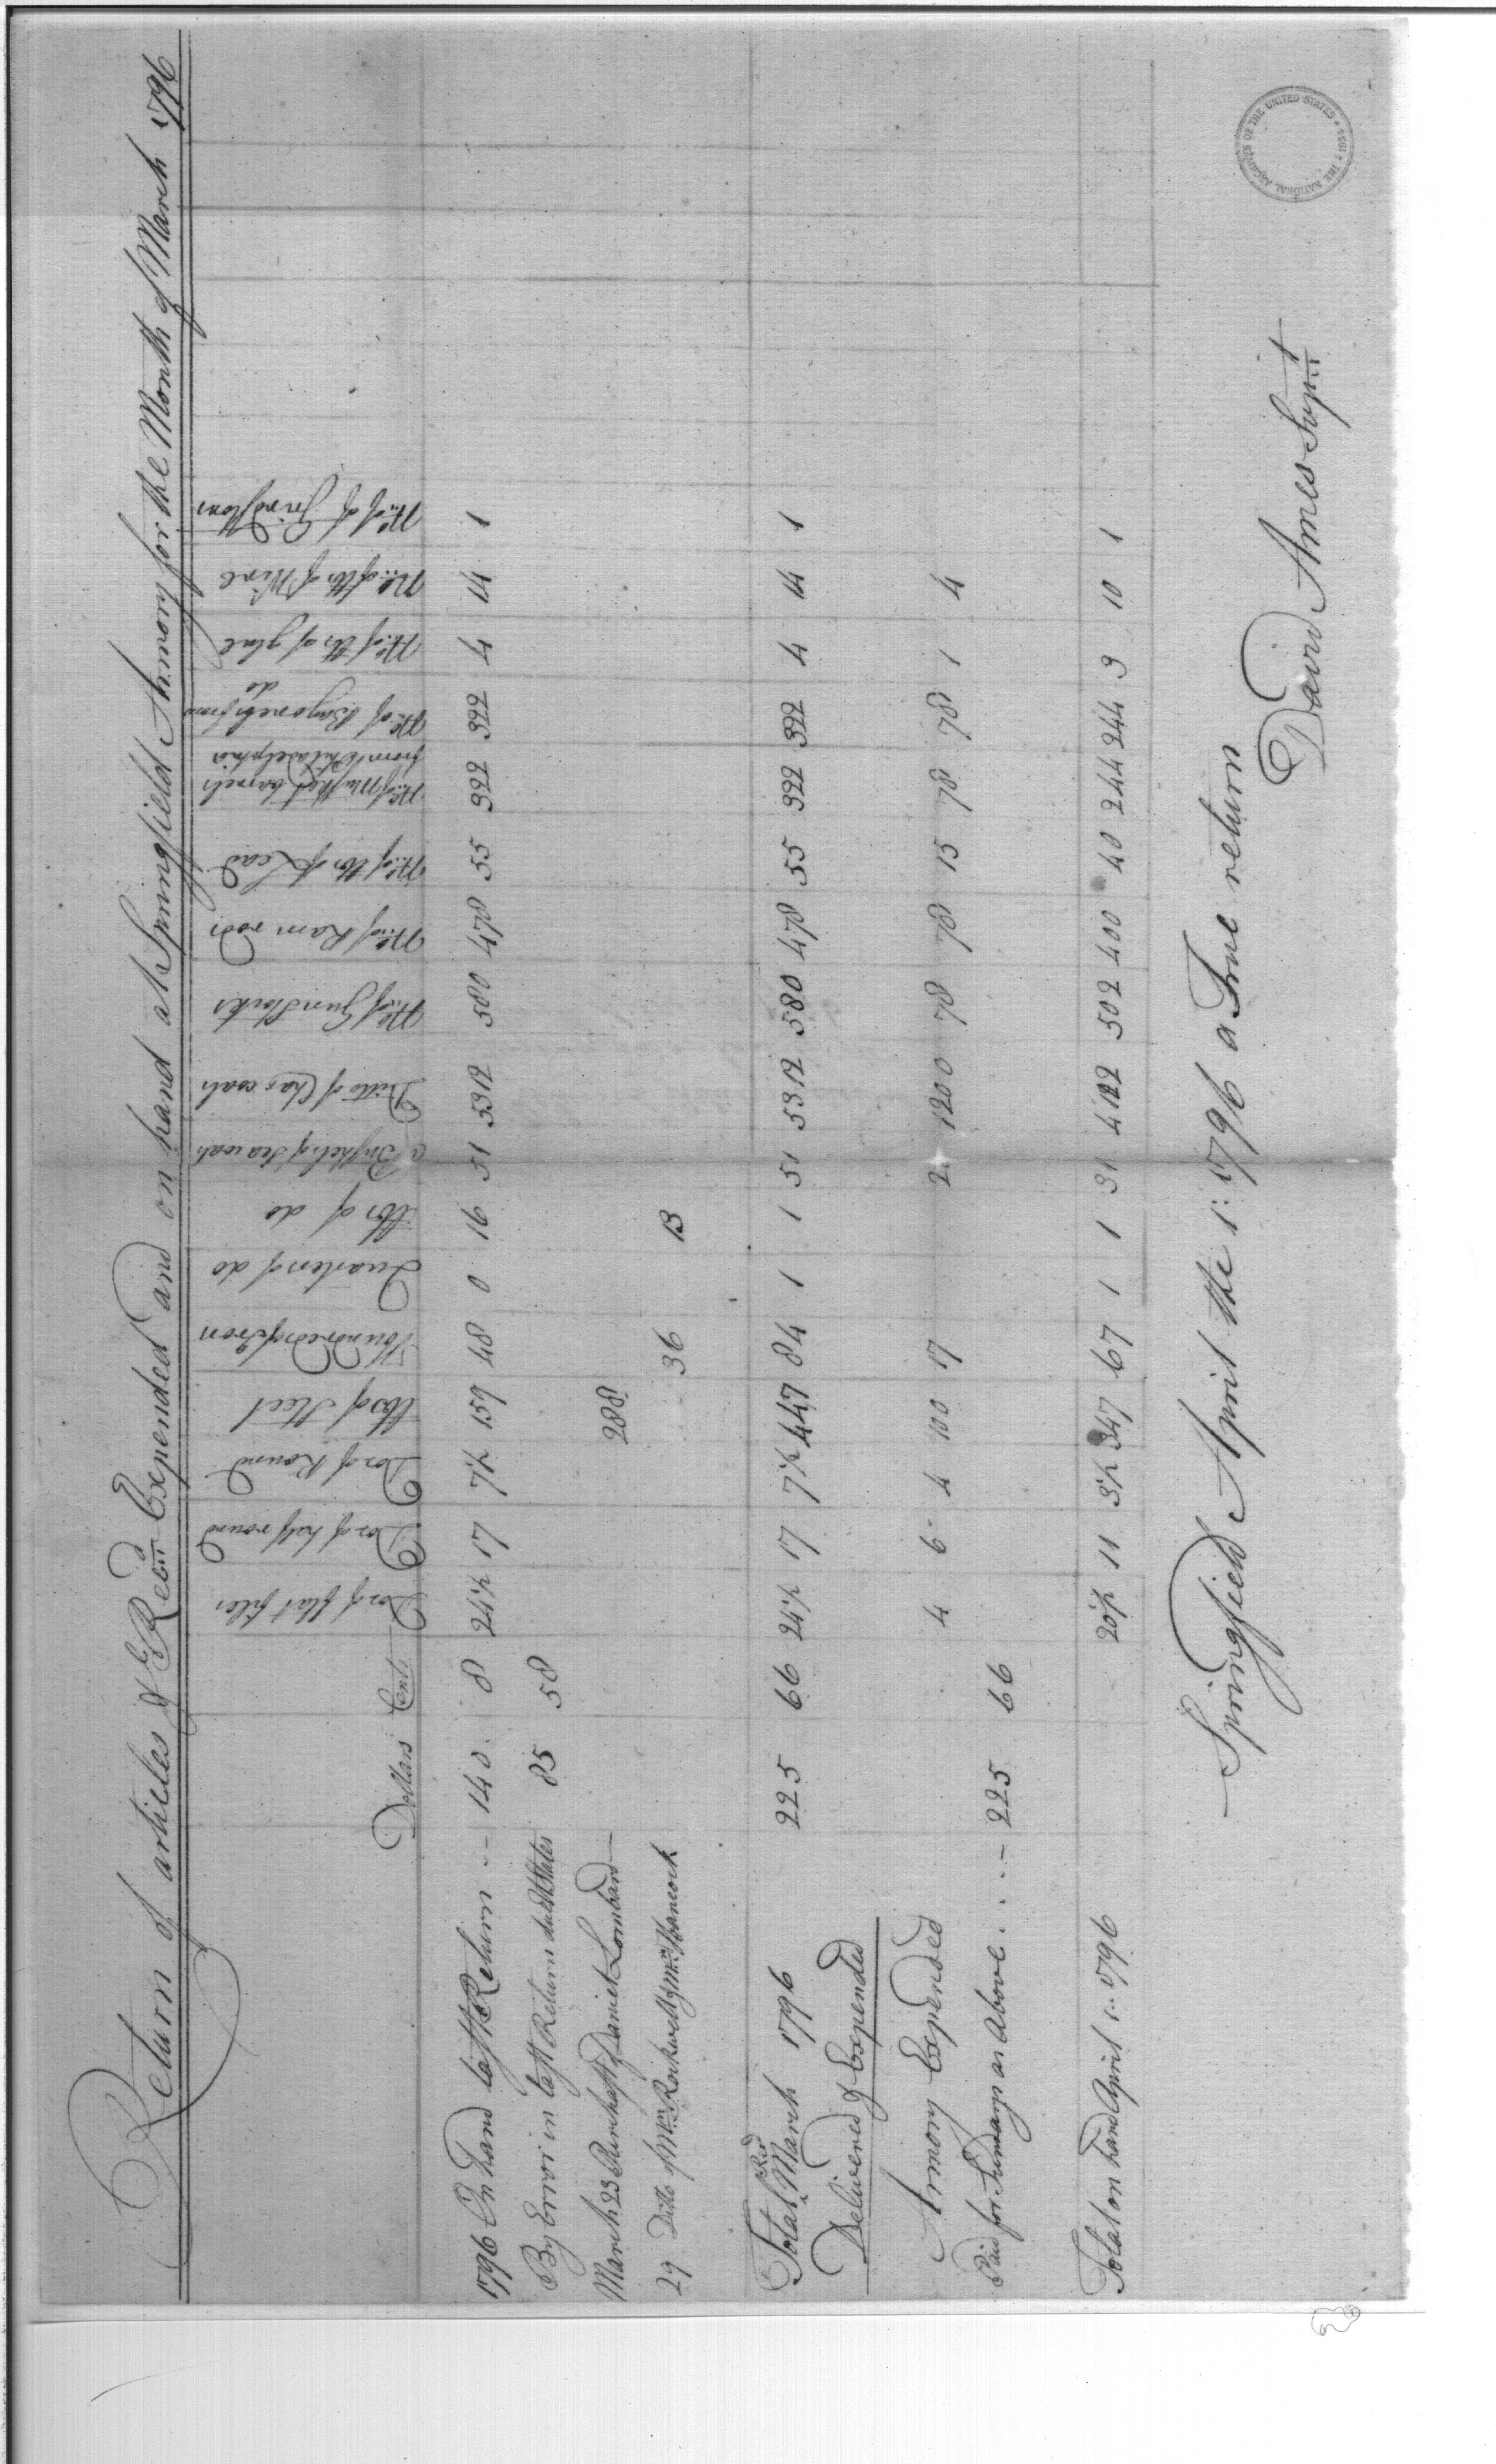 Return of articles & Recd Expended and on hand at Springfield Armory for the Month of March 1796
Dollars Cents Doz of flat files Doz of half round Doz of Round lbs of Steel Hundred of Iron Quarters of do lbs of do Bushels of Sea coals Ditto of Char coals No. of Gun Stocks No. of Ram rods No. of lbs of Lead No. of Musket barrels from Philadelphia No. of Bayonets from do No. of lbs of glue No. of lbs of Wire No. of Grindstons
1796 On hand last Return -- 140 8 24 1/2 17 7 1/2 159 48 0 16 51 5312 580 478 55 322 322 4 14 1
By Error in last Return due U States 85 58
March 23 Purchast of Daniel Lombard — 288
29 Ditto of Mr. Rockwell & Mr. Hancock 36 13
Total Recd March 1796 225 66 24 1/2 17 7 1/2 447 84 1 1 51 5312 580 478 55 322 322 4 14 1
Delivered & Expended
Armory Expended 4 6 4 100 17 2 1200 78 78 15 78 78 1 4
Paid for Sundrays as Above . . . – 225 66
Total on hand April 1: 1796 20 1/2 11 3 1/2 347 67 1 1 31 4112 502 400 40 244 244 3 10 1
Springfield April the 1: 1796 a True return
David Ames Supt
THE NATIONAL ARCHIVES OF THE UNITED STATES • 1934 •